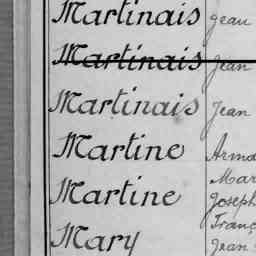 Martinais Jean
Martinais Jean
Martinais Jean
Martine
Martine Joseph
Mary Jean